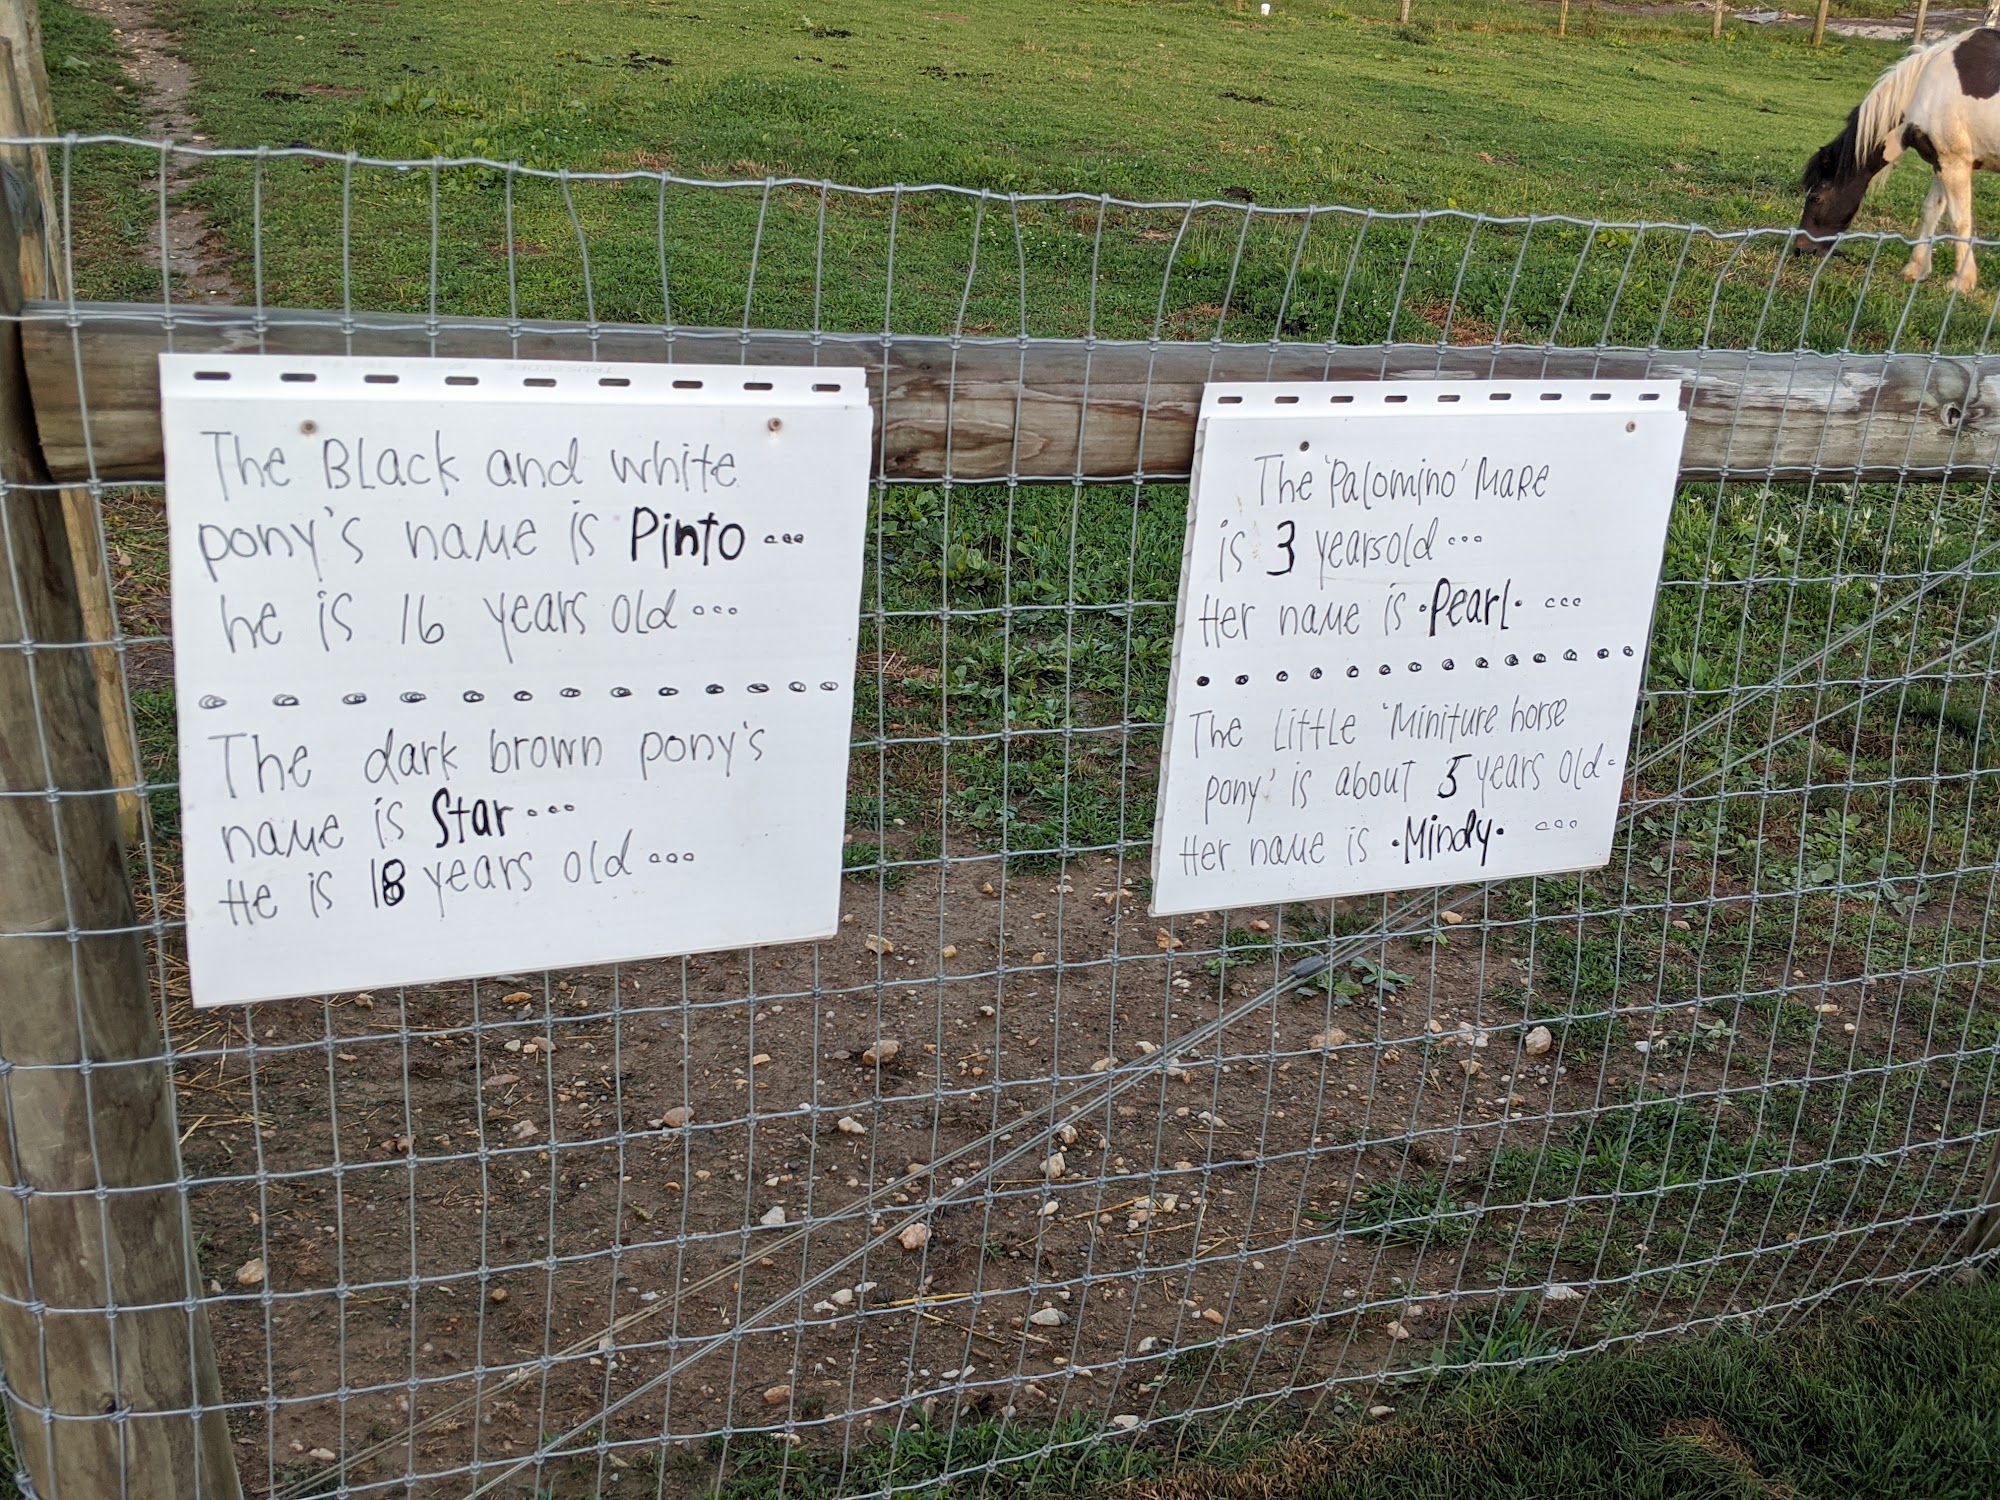 The Black and white
pony's name is Pinto ...
he is 16 years old ...
The dark brown pony's
name is Star ...
He is 18 years old ...
The 'Palomino' Mare
is 3 years old ...
Her name is •Pearl• ...
The little 'Miniture horse
pony' is about 5 years old.
Her name is •Mindy• ...